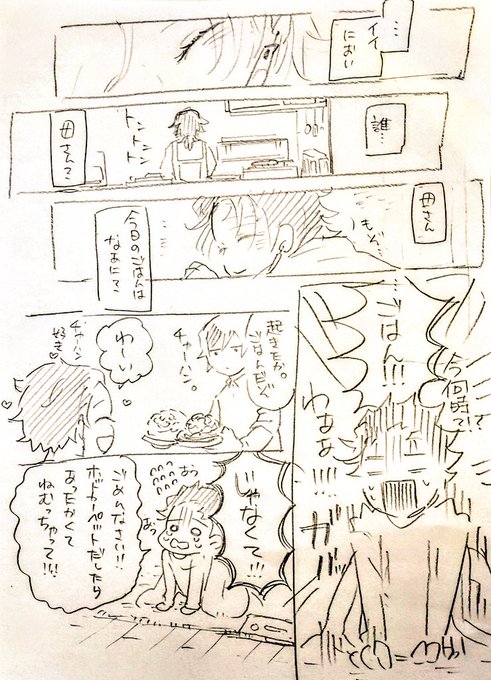 …イイ
におい
誰…
トントントントン
母さん?
母さん
もぞ…
今日のごはんは
なあに?
…ごはん!!!
今何時?!
わああ
!!!!
起きたか。
ごはんだぞ
チャーハン。
わーい
チャーハン
好き♡
じゃなくて!!!
あっ
あっ
ごめんなさい!!
ホットカーペットだしたら
あったかくて
ねむっちゃって!!!